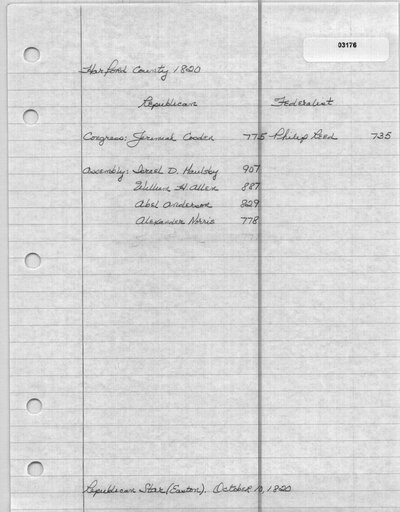 03176
Harford County 1820
Republican Federalist
Congress: Jeremiah Cosden 775 Philip Reed 735
Assembly: Israel D. Maulsby 907
William H. Allen 887
Abel Anderson 829
Alexander Norris 778
Republican Star (Easton). October 10, 1820